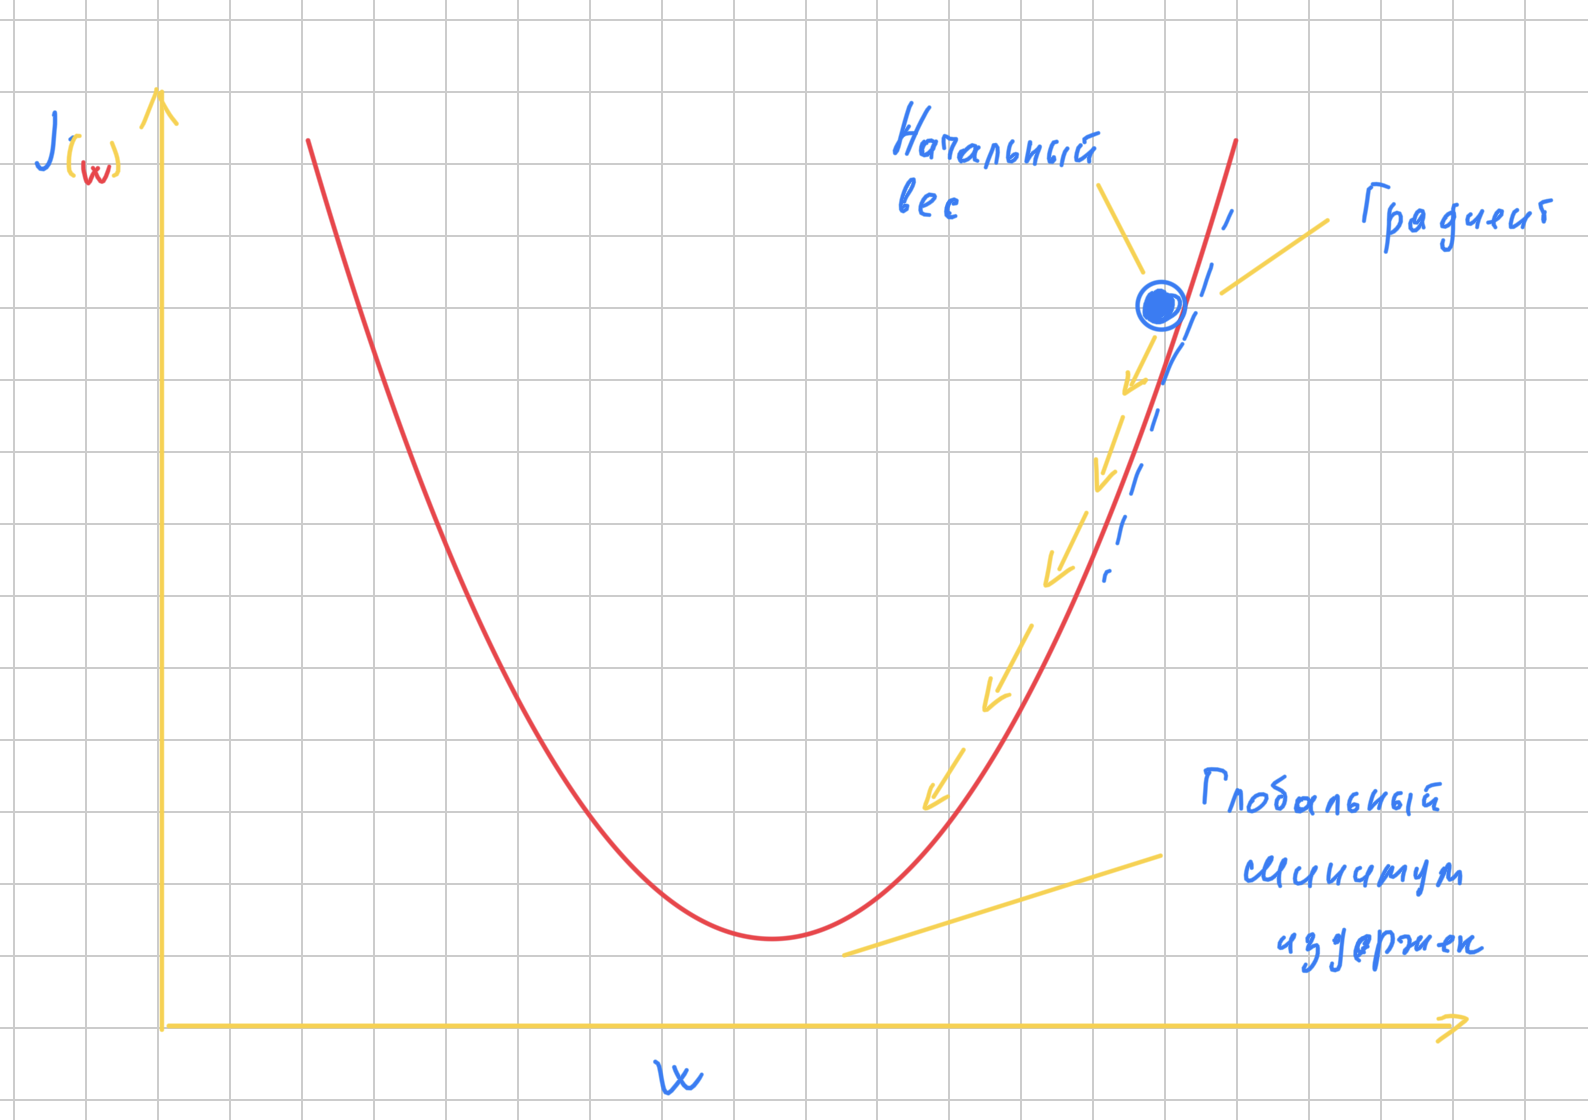 J(w)
Начальный
вес
Градиент
Глобальный
минимум
издержек
w